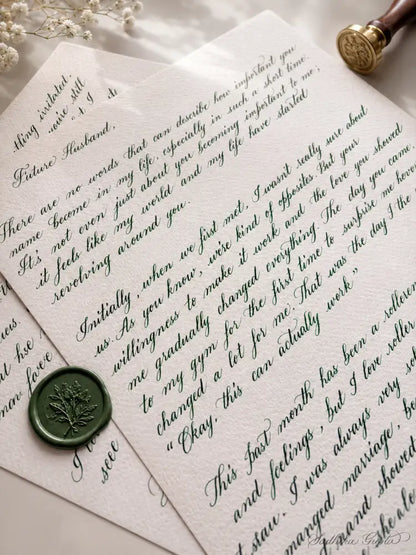 thing irritated,
you're still
but I
Future Husband,
There are no words that can describe how important you
name become in my life, especially in such a short time.
It's not even just about you becoming important to me,
it feels like my world and my life have started
revolving around you.
Initially, when we first met, I wasn't really sure about
us. As you know, we're kind of opposites. But your
willingness to make it work and the love you showed
me gradually changed everything. The day you came
to my gym for the first time to surprise me, hover
changed a lot for me. That was the day I the
"Okay, this can actually work"
This past month has been a
and feelings, but I love
I was always very
marriage, to
and showed
but hse
love
I lo
see
Sadhika Gupta